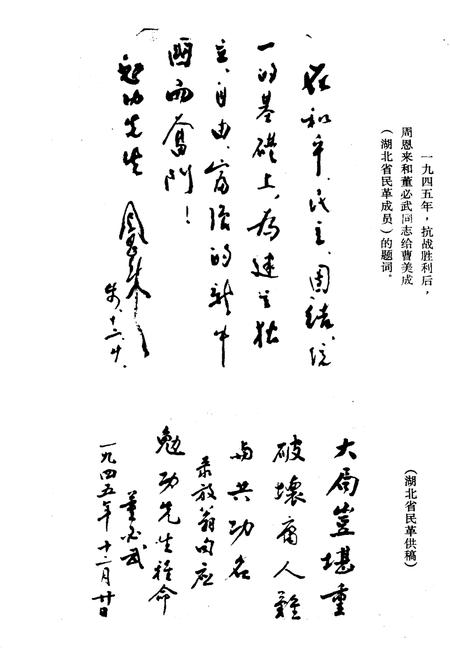 一九四五年，抗战胜利后，
周恩来和董必武同志给曹美成
（湖北省民革成员）的题词。
在和平、民主、团结、统
一的基礎上，为建立独
立、自由、富强的新中
國而奮鬥！
勉功先生
周恩来
十二、廿、
（湖北省民革供稿）
大局豈堪重
破壞庸人難
与共功名
录放翁句应
勉功先生雅命
董必武
一九四五年十二月廿日